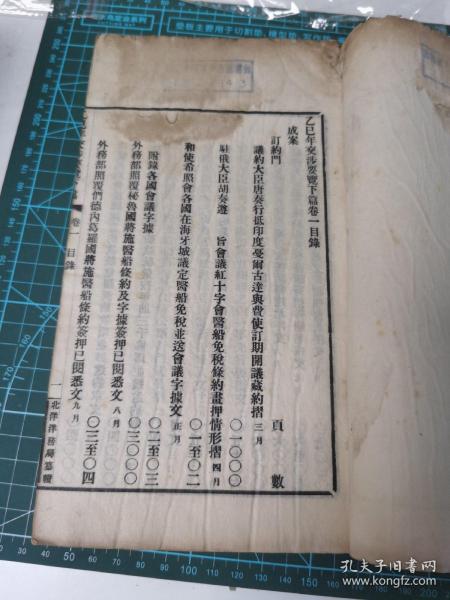 乙巳年交涉要覽下篇卷一目錄
成案　頁數
訂約門
議約大臣唐奏行抵印度憂爾古達與費使訂期開議藏約摺 三月 〇一〇〇〇
駐俄大臣胡奏遵　旨會議紅十字會醫船免稅條約畫押情形摺 四月
和使希照會各國在海牙城議定醫船免稅並送會議字據文 正月 〇一至〇二
附錄各國會議字據 〇二至〇三
外務部照覆秘魯國將施醫船條約及字據簽押已閱悉文 八月 〇三〇〇〇
外務部照覆們德內葛羅國將施醫船條約簽押已閱悉文 九月 〇三至〇四
卷一　目錄　一　北洋洋務局纂輯
孔夫子旧书网
www.kongfz.com